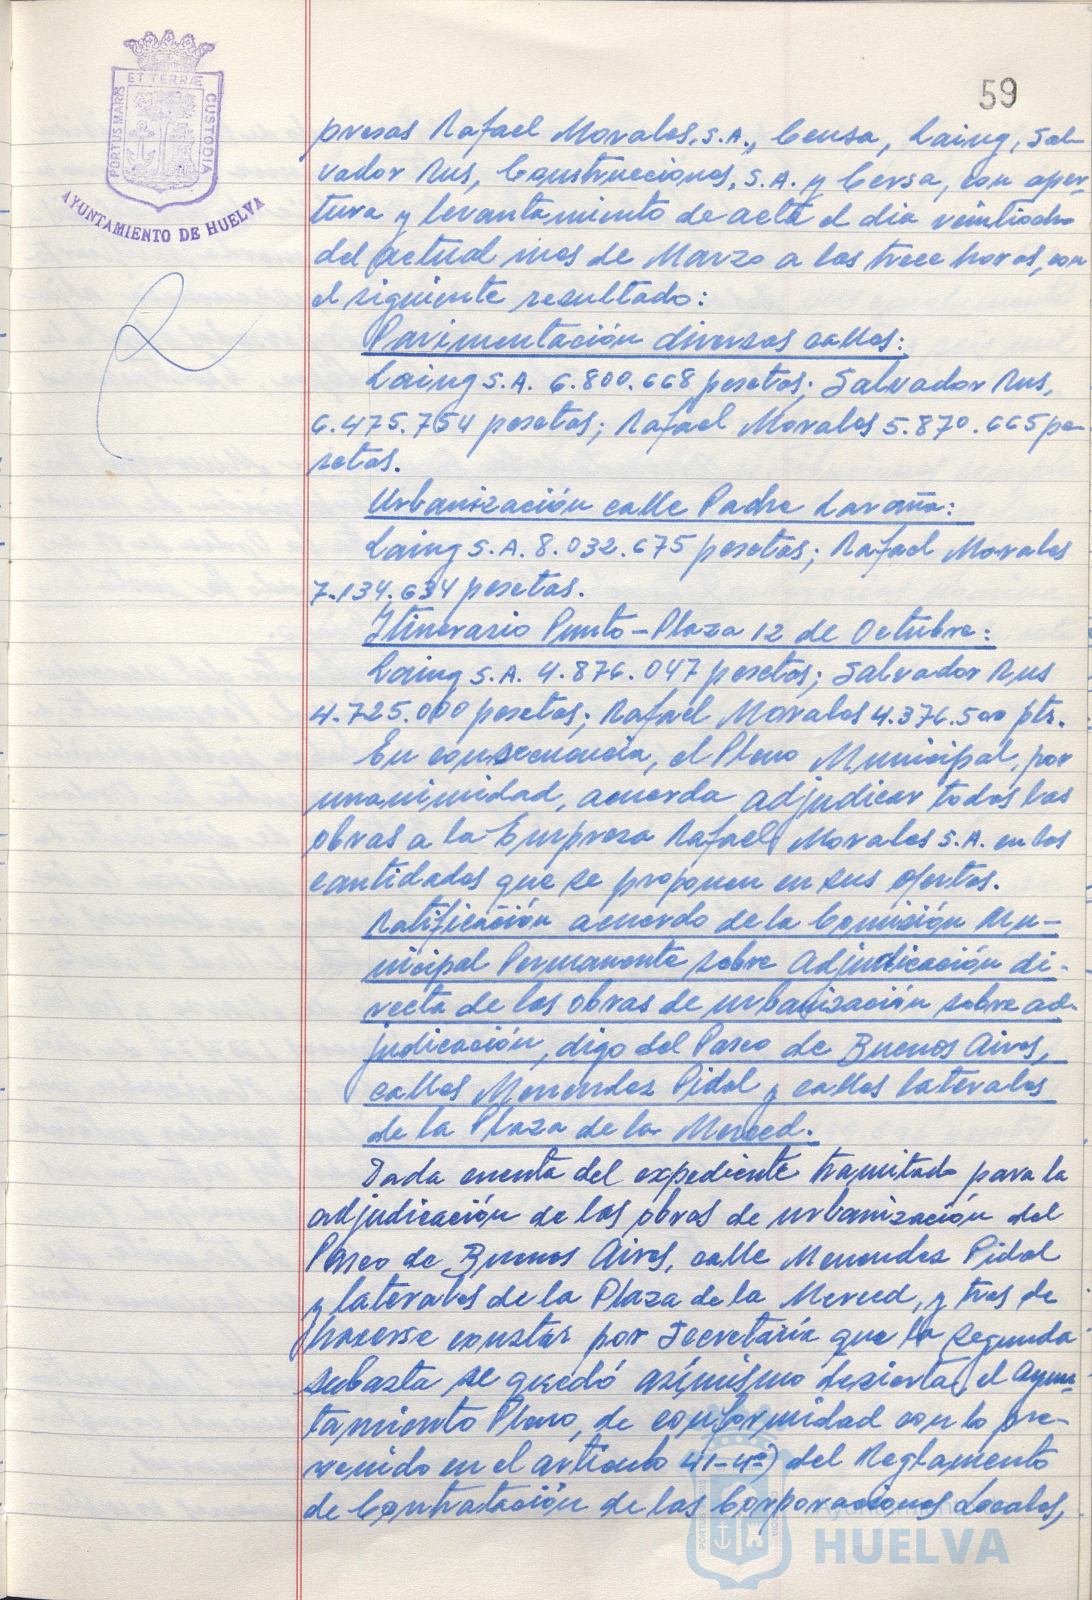 59
ET TERRÆ
PORTUS MARIS
CUSTODIA
AYUNTAMIENTO DE HUELVA
presas Rafael Morales, S.A., Censa, Laing, Sal-
vador Rus, Construcciones, S.A. y Cersa, con aper-
tura y levantamiento de acta el día veintiocho
del actual mes de Marzo a las trece horas, con
el siguiente resultado:
Pavimentación diversas calles:
Laing S.A. 6.800.668 pesetas; Salvador Rus,
6.475.754 pesetas; Rafael Morales 5.870.665 pe-
setas.
Urbanización calle Padre Laraña:
Laing S.A. 8.032.675 pesetas; Rafael Morales
7.134.634 pesetas.
Itinerario Punto-Plaza 12 de Octubre:
Laing S.A. 4.876.047 pesetas; Salvador Rus
4.725.000 pesetas; Rafael Morales 4.376.500 pts.
En consecuencia, el Pleno Municipal, por
unanimidad, acuerda adjudicar todas las
obras a la Empresa Rafael Morales S.A. en las
cantidades que se proponen en sus ofertas.
Ratificación acuerdo de la Comisión Mu-
nicipal Permanente sobre Adjudicación di-
recta de las obras de urbanización sobre ad-
judicación, digo del Paseo de Buenos Aires,
calles Menendez Pidal y calles laterales
de la Plaza de la Merced.
Dada cuenta del expediente tramitado para la
adjudicación de las obras de urbanización del
Paseo de Buenos Aires, calle Menendez Pidal
y laterales de la Plaza de la Merced, y tras de
hacerse constar por Secretaría que la segunda
subasta se quedó asimismo desierta, el Ayun-
tamiento Pleno, de conformidad con lo pre-
venido en el artículo 41-4º) del Reglamento
de Contratación de las Corporaciones Locales,
Ayuntamiento
HUELVA